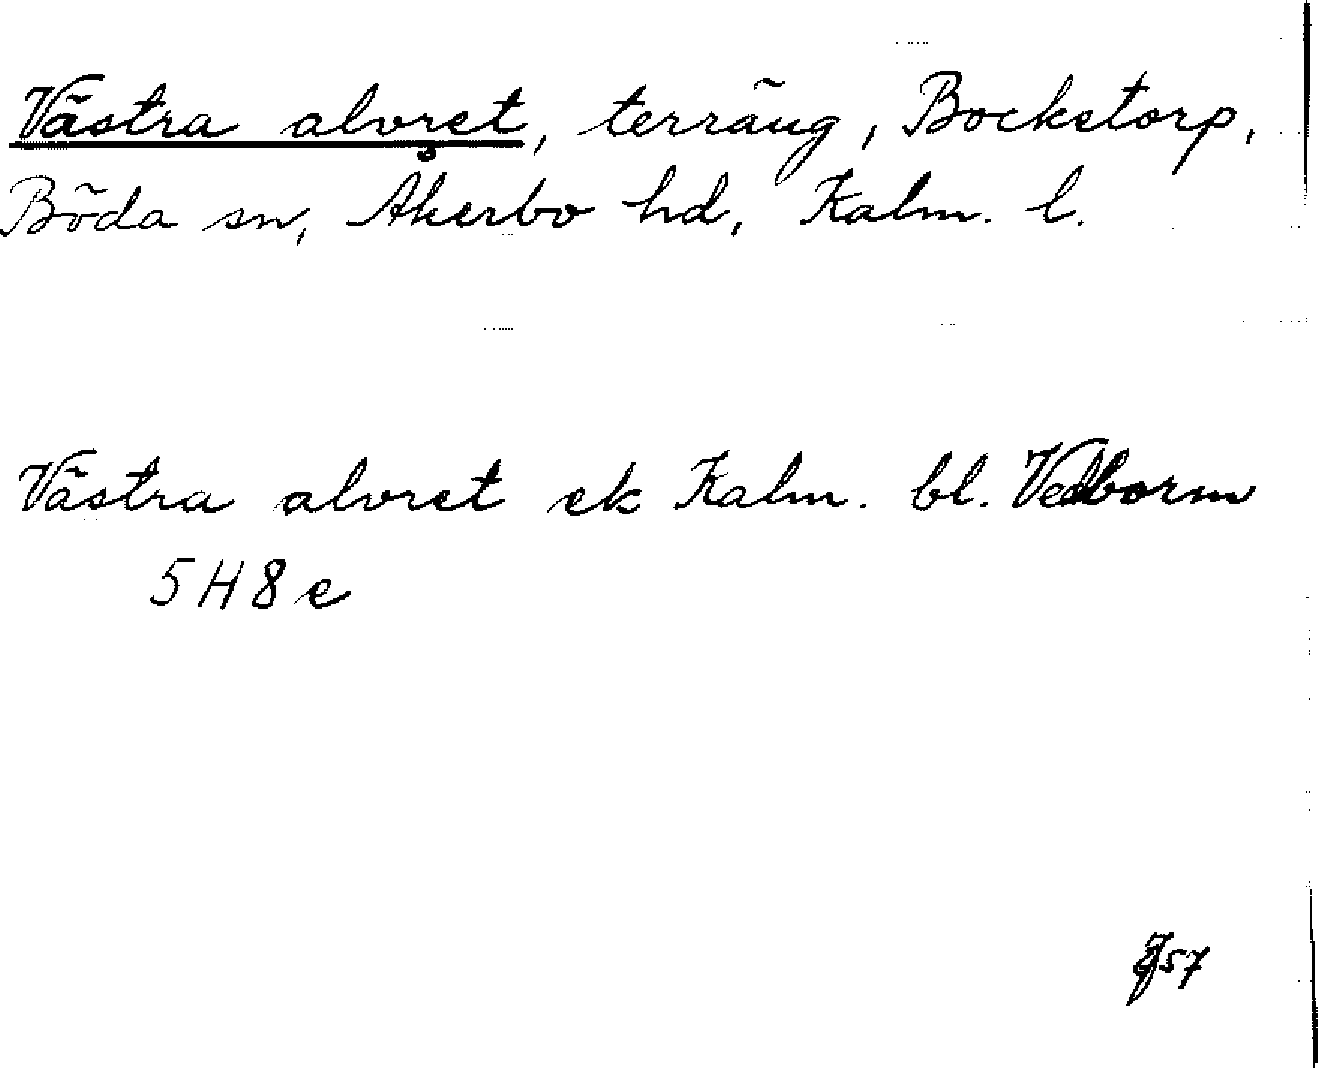 Västra alvret, terräng, Bockstorp,
Böda sn, Åkerbo hd, Kalm. l.
Västra alvret ek Kalm. bl. Vedborm
5H8e
57